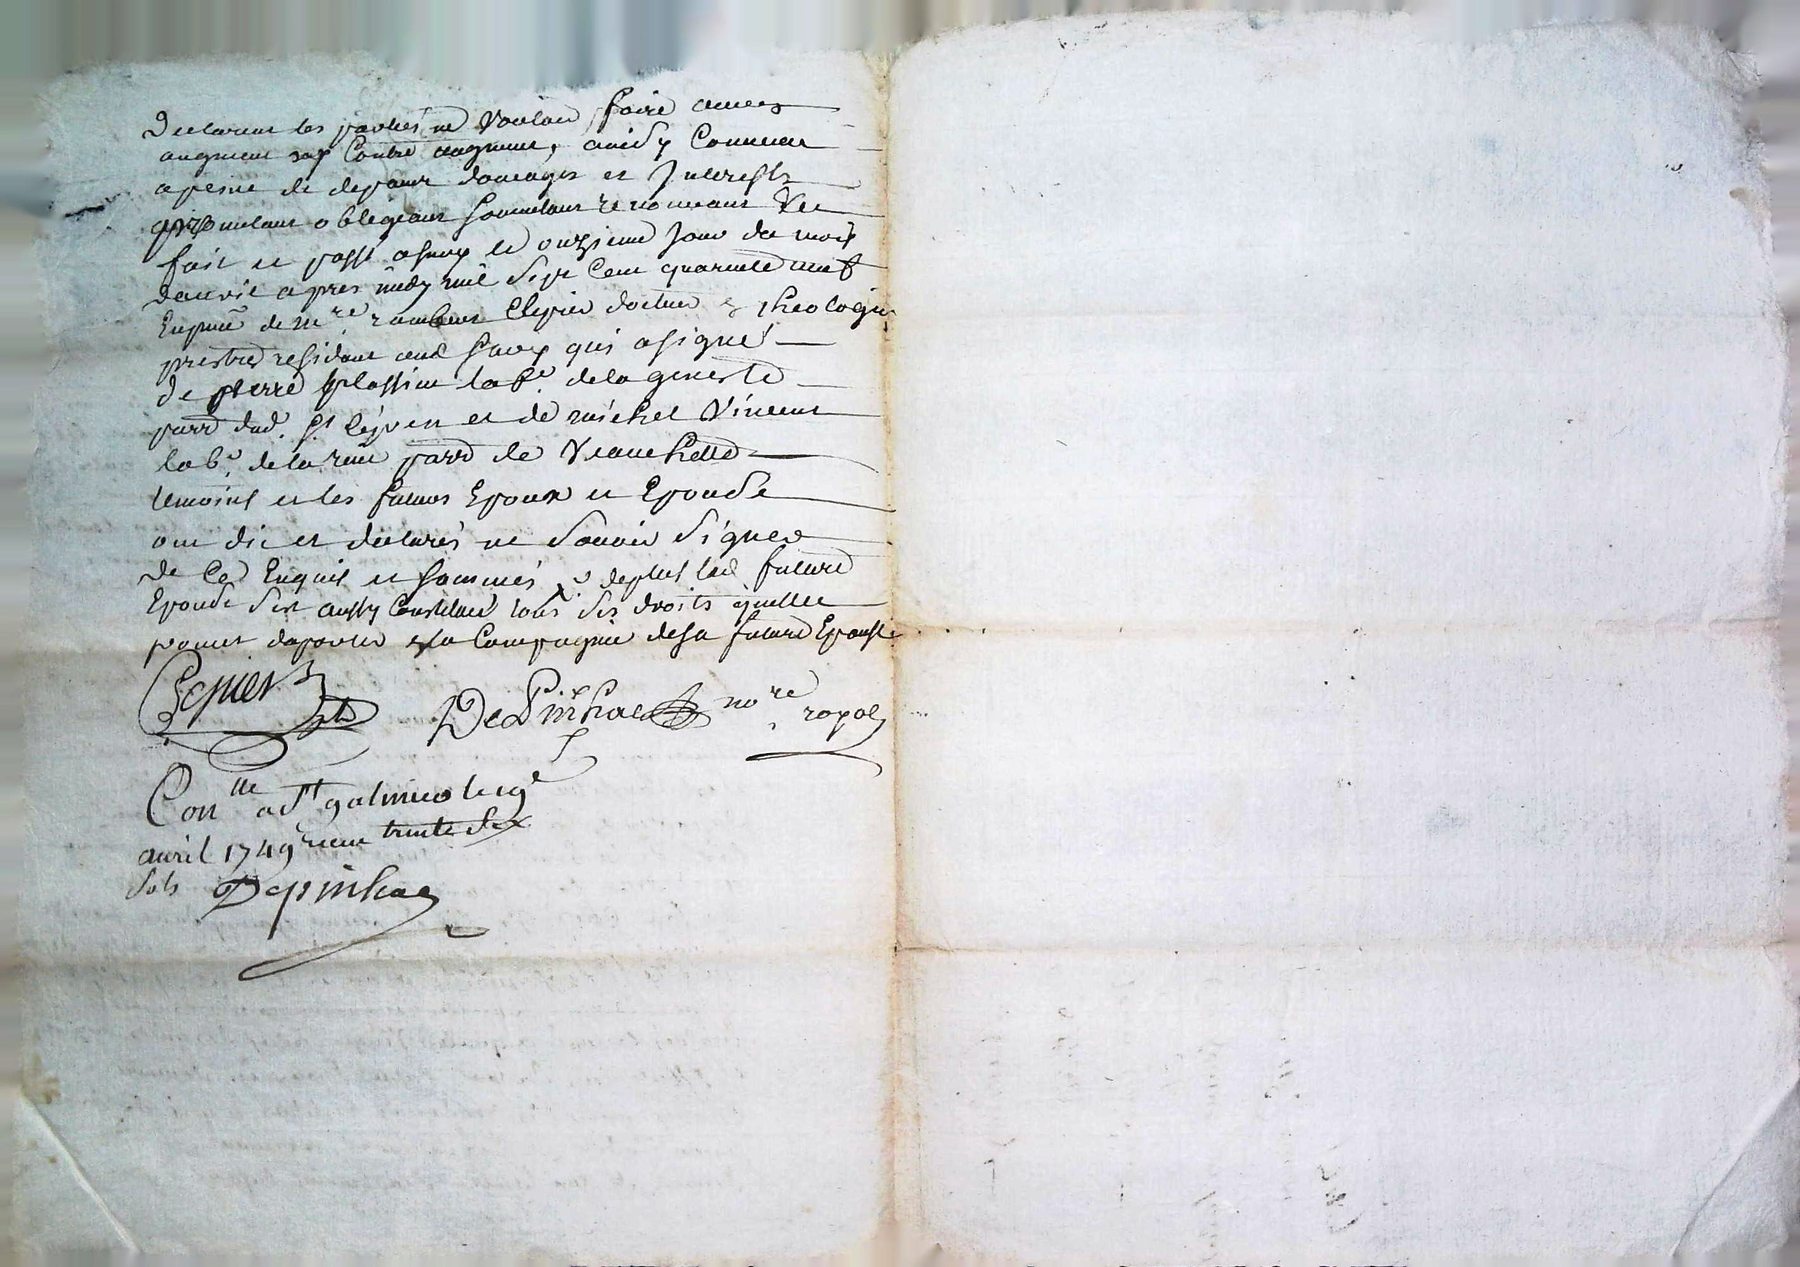 declarent les parties ne Vouloir faire aucun
augment ny Contre augment, ainsy Convenu
a peine de depans domages et Interests
promettans obligeans soumetans renonceans &c
fait et passé a le onzieme jour du mois
davril apres midy mil sept Cent quarante neuf
En pnce de mre docteur theologie
prestre residant aud qui a signé
de pierre labr. de la geneste
parr dud. St et de michel Vincent
labr. de la parr de Veauchette
temoins et les futurs Epoux et Epouse
ont dit et declarés ne Savoir Signer
de Ce Enquis et sommés, de plus lad future
Epouse sest aussy Constitué tous ses droits quelle
pouroit aporter a la Compagnie de sa future Epouse
DePinhac nore royal
Conlle a St galmier le 19e
avril 1749 receu trente six
sols Depinhac